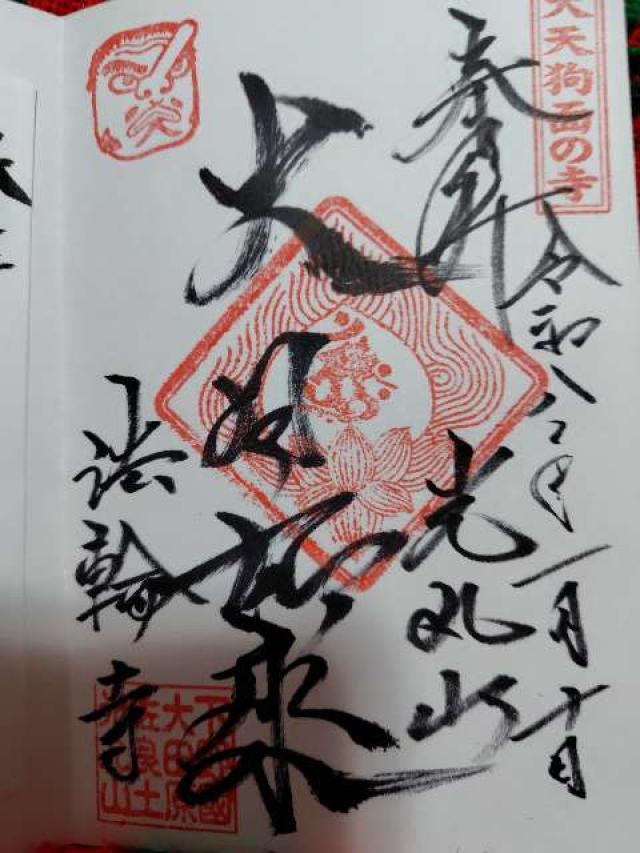 大天狗面の寺
令和八年一月十日
奉拝
光丸山
大日如来
法輪寺
下野國
大田原
佐良土
光丸山